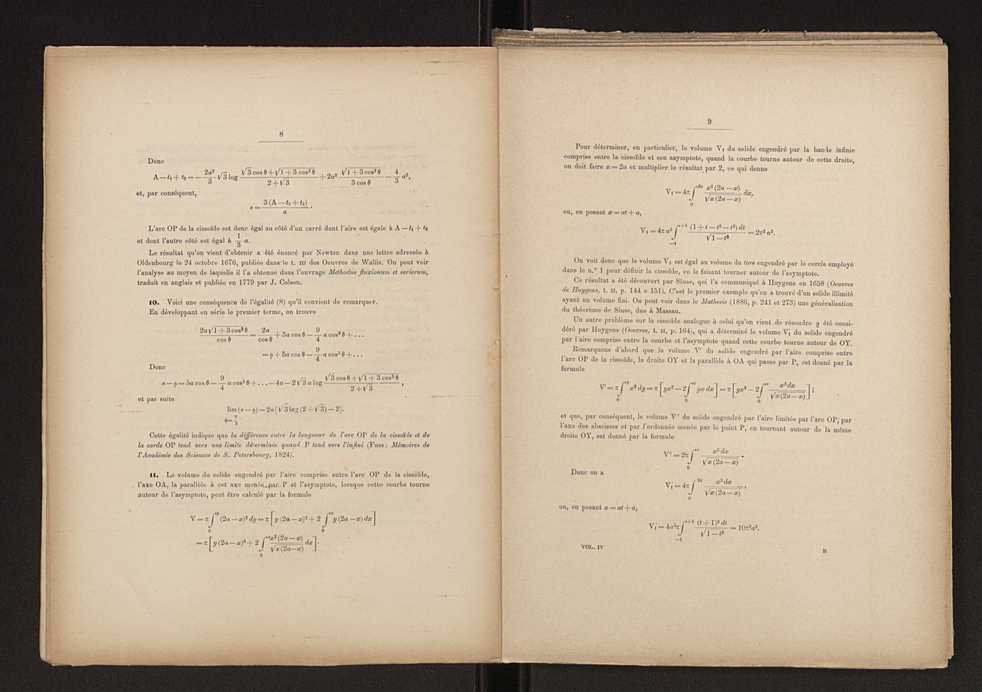 8
Donc
A — t₁ + t₂ = — 2a²/3 · √3 log (√3 cos θ + √(1 + 3 cos² θ))/(2 + √3) + 2a² · √(1 + 3 cos² θ)/(3 cos θ) — 4/3 a²,
et, par conséquent,
s = 3 (A — t₁ + t₂)/a .
L'arc OP de la cissoïde est donc égal au côté d'un carré dont l'aire est égale à A — t₁ + t₂
et dont l'autre côté est égal à 1/3 a.
Le résultat qu'on vient d'obtenir a été énoncé par Newton dans une lettre adressée à
Oldenbourg le 24 octobre 1676, publiée dans le t. III des Oeuvres de Wallis. On peut voir
l'analyse au moyen de laquelle il l'a obtenue dans l'ouvrage Methodus fluxionum et serierum,
traduit en anglais et publiée en 1779 par J. Colson.
10. Voici une conséquence de l'égalité (8) qu'il convient de remarquer.
En développant en série le premier terme, on trouve
2a√(1 + 3 cos² θ)/cos θ = 2a/cos θ + 3a cos θ — 9/4 a cos³ θ + . . .
= ρ + 5a cos θ — 9/4 a cos³ θ + . . .
Donc
s — ρ = 5a cos θ — 9/4 a cos³ θ + . . . — 4a — 2√3 a log (√3 cos θ + √(1 + 3 cos² θ))/(2 + √3) ,
et par suite
lim (s — ρ) = 2a [√3 log (2 + √3) — 2].
θ = π/2
Cette égalité indique que la différence entre la longueur de l'arc OP de la cissoïde et de
la corde OP tend vers une limite déterminée quand P tend vers l'infini (Fuss: Mémoires de
l'Académie des Sciences de S. Petersbourg, 1824).
11. Le volume du solide engendré par l'aire comprise entre l'arc OP de la cissoïde,
l'axe OA, la parallèle à cet axe menée par P et l'asymptote, lorsque cette courbe tourne
autour de l'asymptote, peut être calculé par la formule
V = π ∫₀ʸ (2a — x)² dy = π [ y (2a — x)² + 2 ∫₀ˣ y (2a — x) dx ]
= π [ y (2a — x)² + 2 ∫₀ˣ x² (2a — x)/√(x (2a — x)) dx ] .
9
Pour déterminer, en particulier, le volume V₁ du solide engendré par la bande infinie
comprise entre la cissoïde et son asymptote, quand la courbe tourne autour de cette droite,
on doit faire x = 2a et multiplier le résultat par 2, ce qui donne
V₁ = 4π ∫₀²ᵃ x² (2a — x)/√(x (2a — x)) dx,
ou, en posant x = at + a,
V₁ = 4π a³ ∫₋₁⁺¹ (1 + t — t² — t³) dt/√(1 — t²) = 2π² a³.
On voit donc que le volume V₁ est égal au volume du tore engendré par le cercle employé
dans le n.º 1 pour définir la cissoïde, en le faisant tourner autour de l'asymptote.
Ce résultat a été découvert par Sluse, qui l'a communiqué à Huygens en 1658 (Oeuvres
de Huygens, t. II, p. 144 e 151). C'est le premier exemple qu'on a trouvé d'un solide illimité
ayant un volume fini. On peut voir dans le Mathesis (1886, p. 241 et 273) une généralisation
du théorème de Sluse, due à Massau.
Un autre problème sur la cissoïde analogue à celui qu'on vient de résoudre a été consi-
déré par Huygens (Oeuvres, t. II, p. 164), qui a déterminé le volume V₁ du solide engendré
par l'aire comprise entre la courbe et l'asymptote quand cette courbe tourne autour de OY.
Remarquons d'abord que le volume V' du solide engendré par l'aire comprise entre
l'arc OP de la cissoïde, la droite OY et la parallèle à OA qui passe par P, est donné par la
formule
V' = π ∫₀ʸ x² dy = π [ yx² — 2 ∫₀ˣ yx dx ] = π [ yx² — 2 ∫₀ˣ x³ dx/√(x (2a — x)) ] ;
et que, par conséquent, le volume V'' du solide engendré par l'aire limitée par l'arc OP, par
l'axe des abscisses et par l'ordonnée menée par le point P, en tournant autour de la même
droite OY, est donné par la formule
V'' = 2π ∫₀ˣ x³ dx/√(x (2a — x)) .
Donc on a
V₁ = 4π ∫₀²ᵃ x³ dx/√(x (2a — x)) ,
ou, en posant x = at + a,
V₁ = 4a³π ∫₋₁⁺¹ (t + 1)³ dt/√(1 — t²) = 10π²a³.
VOL. IV
B